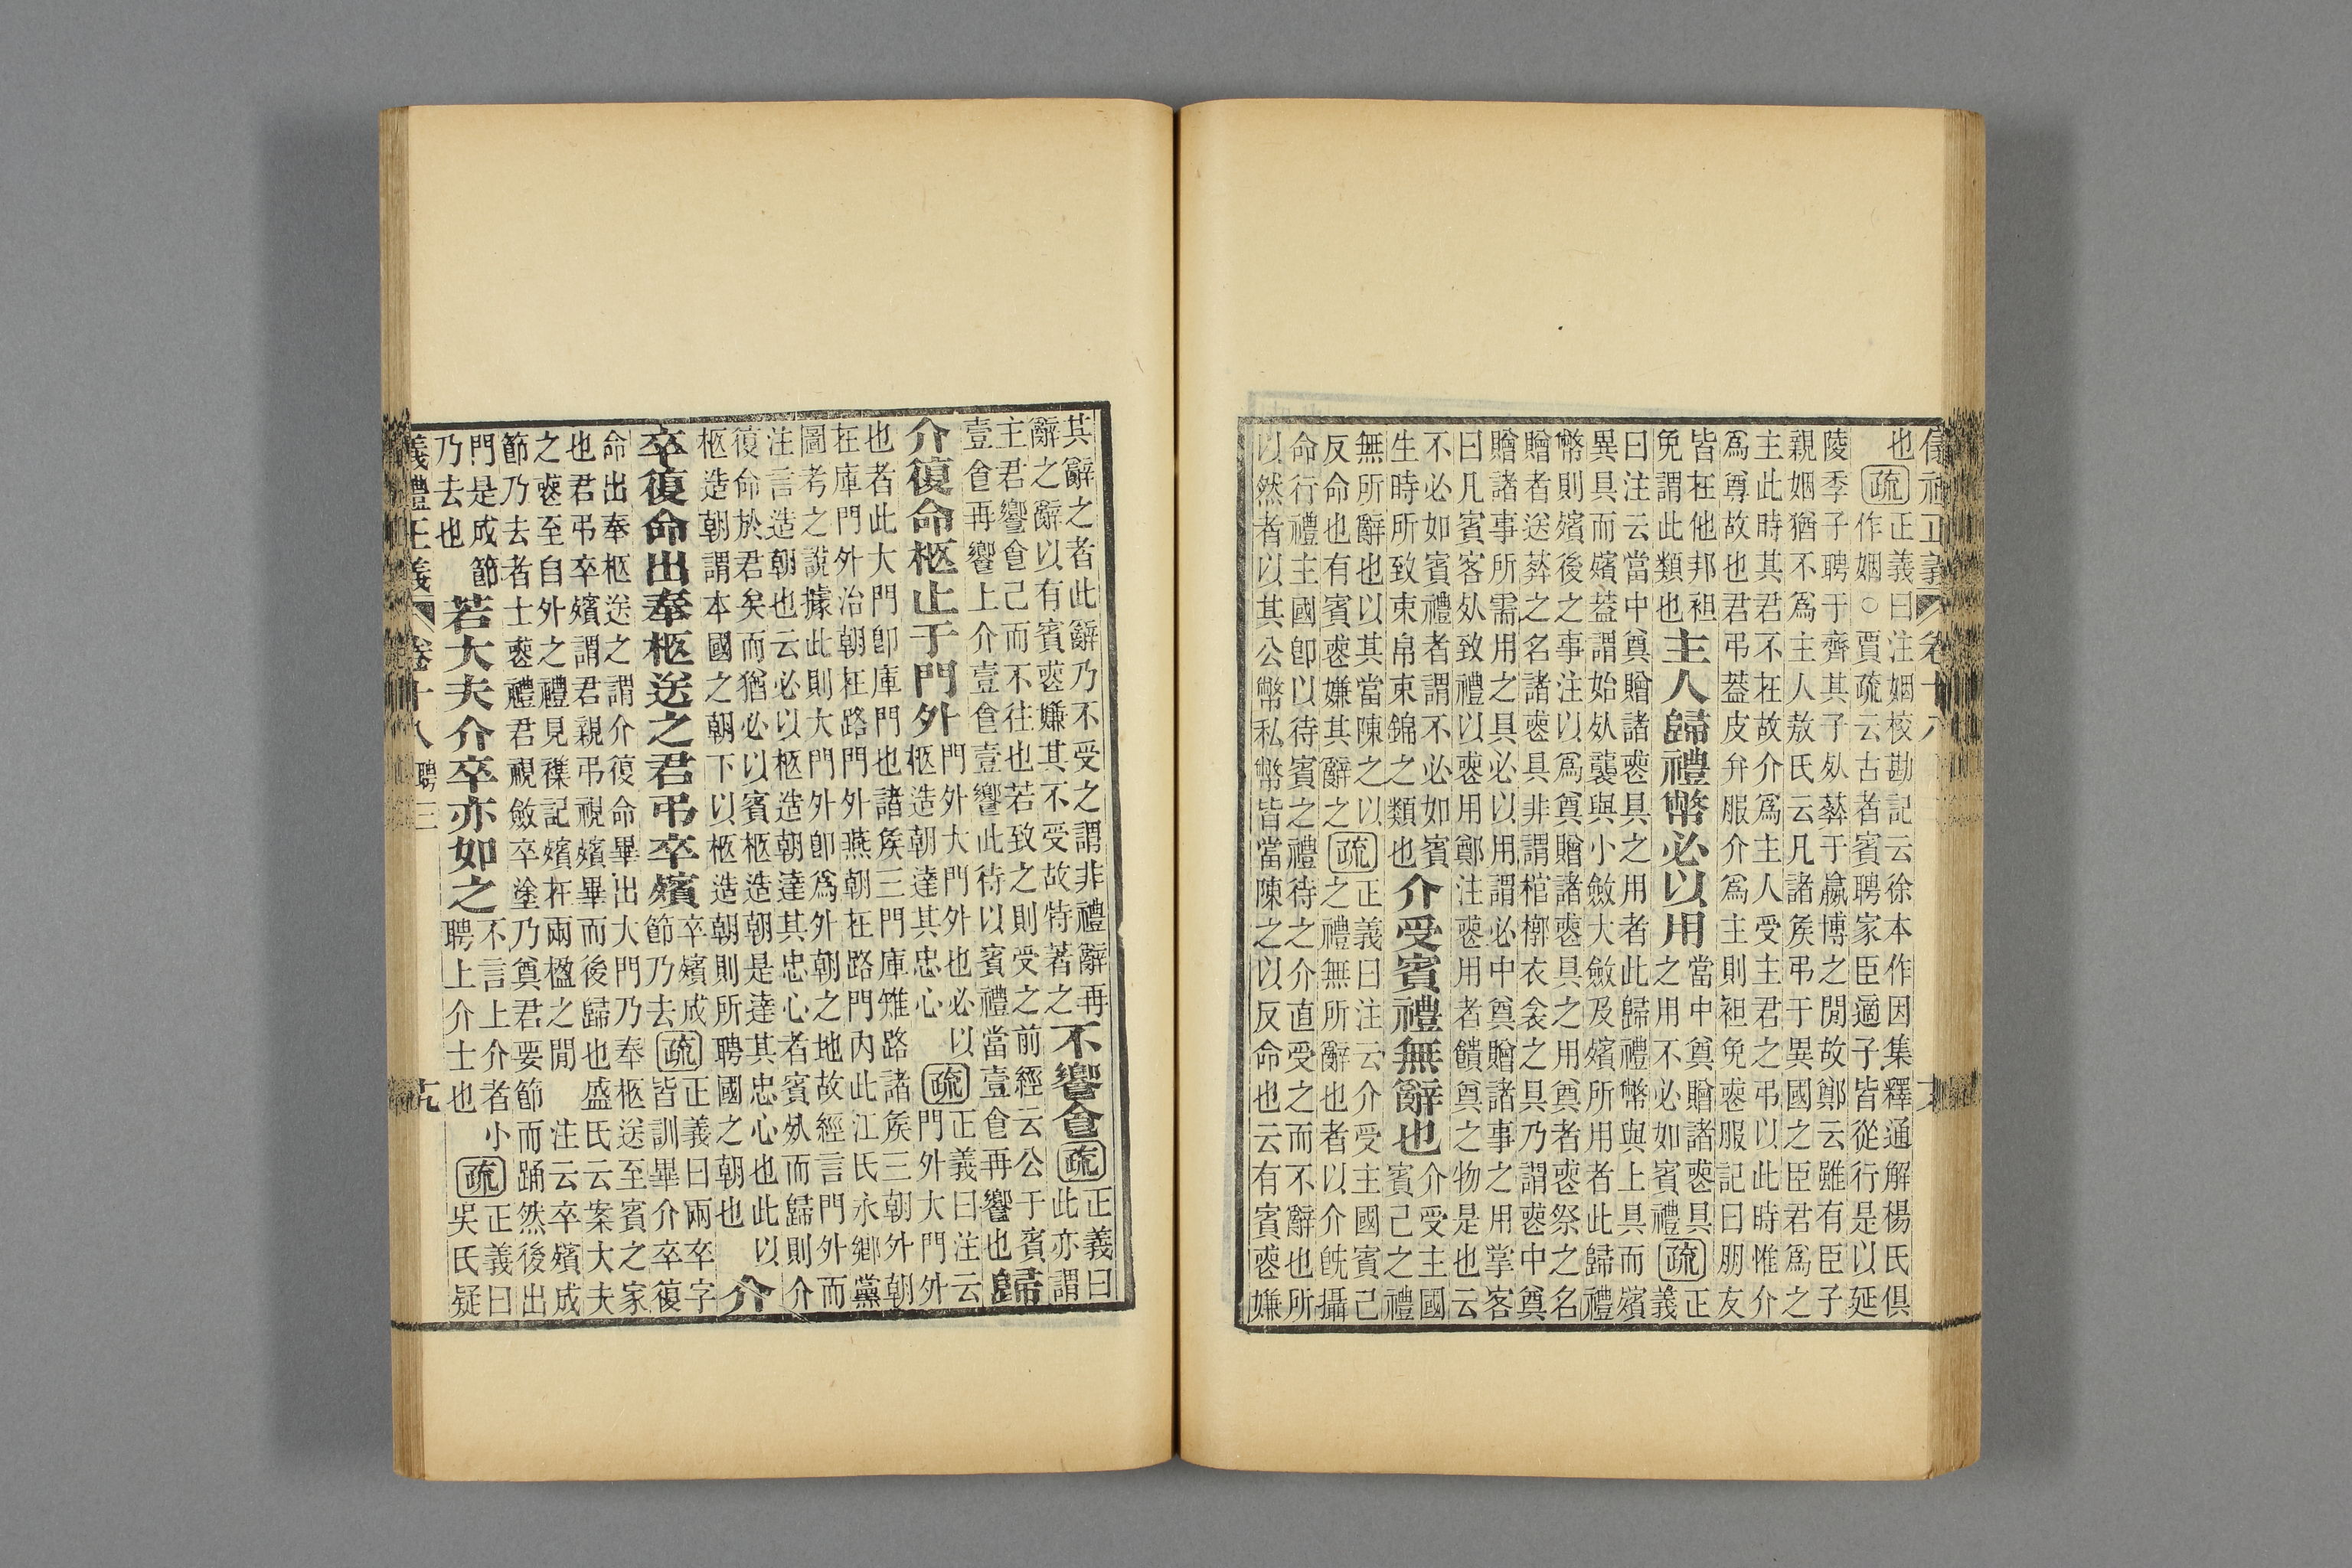 正義 卷十八
也疏正義曰注姻校勘記云徐本作因集釋通解楊氏俱
作姻○賈疏云古者賓聘家臣適子皆從行是以延
陵季子聘于齊其子𣦸葬于嬴博之閒故鄭云雖有臣子
親姻猶不爲主人敖氏云凡諸矦弔于異國之臣君爲之
主此時其君不在故介爲主人受主君之弔以此時惟介
爲尊故也君弔葢皮弁服介爲主則袒免䘮服記曰朋友
皆在他邦袒
免謂此類也
主人歸禮幣必以用
當中奠贈諸䘮具
之用不必如賓禮
疏正
義
曰注云當中奠贈諸䘮具之用者此歸禮幣與上具而殯
異具而殯葢謂始𣦸襲與小斂大斂及殯所用者此歸禮
幣則殯後之事注以爲奠贈諸䘮具之用奠者䘮祭之名
贈者送葬之名諸䘮具非謂棺椁衣衾之具乃謂䘮中奠
贈諸事所需用之具必以用謂必中奠贈諸事之用掌客
曰凡賓客𣦸致禮以䘮用鄭注䘮用者饋奠之物是也云
不必如賓禮者謂不必如賓
生時所致束帛束錦之類也
介受賓禮無辭也
介受主國
賓己之禮
無所辭也以其當陳之以
反命也有賓䘮嫌其辭之
疏正義曰注云介受主國賓己
之禮無所辭也者以介旣攝
命行禮主國卽以待賓之禮待之介直受之而不辭也所
以然者以其公幣私幣皆當陳之以反命也云有賓䘮嫌
其辭之者此辭乃不受之謂非禮辭再
辭之辭以有賓䘮嫌其不受故特著之
不饗食
疏正義曰
此亦謂
主君饗食己而不往也若致之則受之前經云公于賓
壹食再饗上介壹食壹饗此待以賓禮當壹食再饗也
歸
介復命柩止于門外
門外大門外也必以
柩造朝達其忠心
疏正義曰注云
門外大門外
也者此大門卽庫門也諸矦三門庫雉路諸矦三朝外朝
在庫門外治朝在路門外燕朝在路門內此江氏永鄉黨
圖考之說據此則大門外卽爲外朝之地故經言門外而
注言造朝也云必以柩造朝達其忠心者賓𣦸而歸則介
復命於君矣而猶必以賓柩造朝是達其忠心也此以
柩造朝謂本國之朝下以柩造朝則所聘國之朝也
介
卒復命出奉柩送之君弔卒殯
卒殯成
節乃去
疏正義曰兩卒字
皆訓畢介卒復
命出奉柩送之謂介復命畢出大門乃奉柩送至賓之家
也君弔卒殯謂君親弔視殯畢而後歸也 盛氏云案大夫
之䘮至自外之禮見襍記殯在兩楹之閒 注云卒殯成
節乃去者士䘮禮君視斂卒塗乃奠君要節而踊然後出
門是成節
乃去也
若大夫介卒亦如之
不言上介者小
聘上介士也
疏正義曰
吳氏疑
禮正義 卷十八 聘三